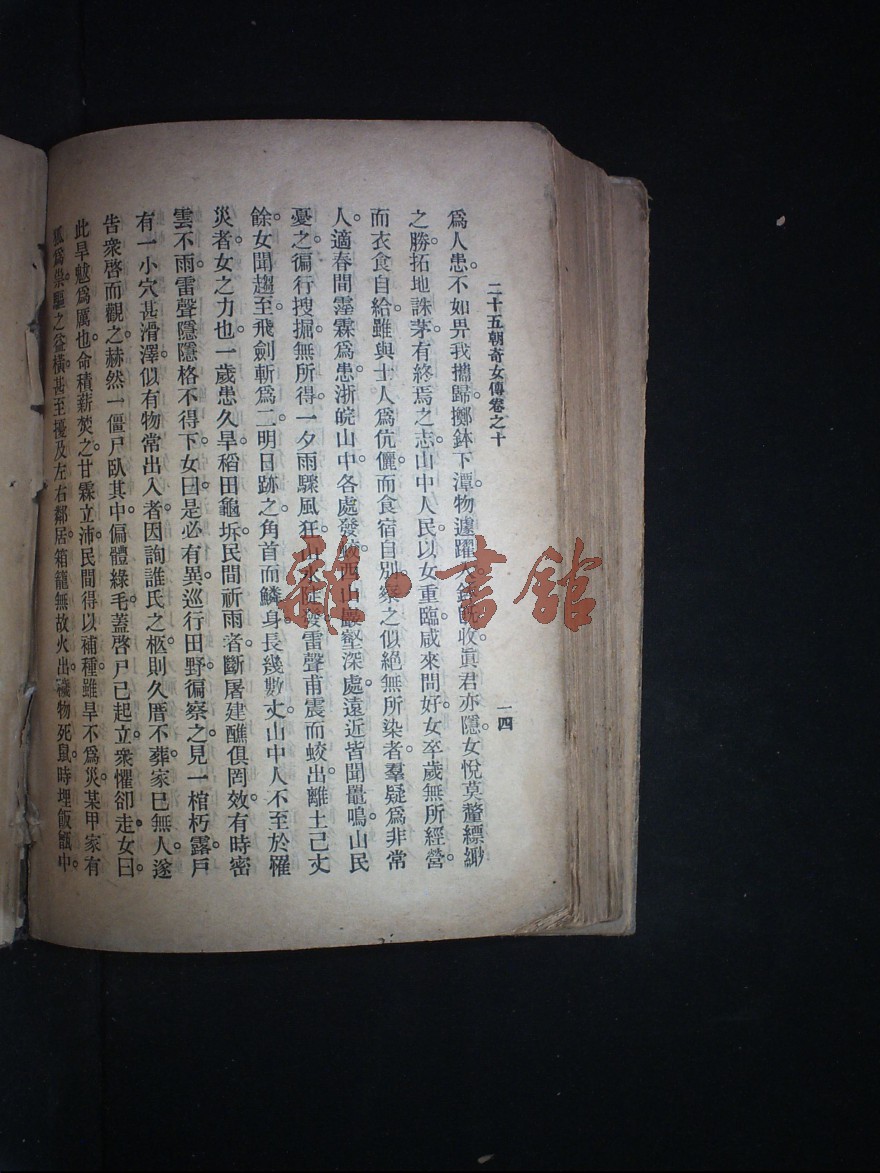 二十五朝奇女傳卷之十
一四
爲人患。不如畀我攜歸。擲鉢下潭。物遽躍入鉢。旣收。眞君亦隱。女悅莫釐縹緲
之勝。拓地誅茅。有終焉之志。山中人民。以女重臨。咸來問好。女卒歲無所經營。
而衣食自給。雖與士人爲伉儷。而食宿自別。察之似絕無所染者。羣疑爲非常
人。適春間霪霖爲患。浙皖山中。各處發蛟。西山巖壑深處。遠近皆聞鼉鳴。山民
憂之。徧行搜掘無所得。一夕雨驟風狂。山水陡發。雷聲甫震而蛟出。離土已丈
餘。女聞趨至。飛劍斬爲二。明日跡之。角首而鱗身。長幾數丈。山中人不至於罹
災者。女之力也。一歲患久旱。稻田龜坼。民間祈雨者。斷屠建醮。俱罔效。有時密
雲不雨。雷聲隱隱。格不得下。女曰。是必有異。巡行田野。徧察之。見一棺朽露。戶
有一小穴甚滑澤。似有物常出入者。因詢誰氏之柩。則久厝不葬。家已無人。遂
告衆啓而觀之。赫然一僵尸臥其中。偏體綠毛。蓋啓尸已起立。衆懼卻走。女曰。
此旱魃爲厲也。命積薪焚之。甘霖立沛。民間得以補種。雖旱不爲災。某甲家有
狐爲祟。驅之益橫。甚至擾及左右鄰居。箱籠無故火出。穢物死鼠。時埋飯甑中。
雜·書館